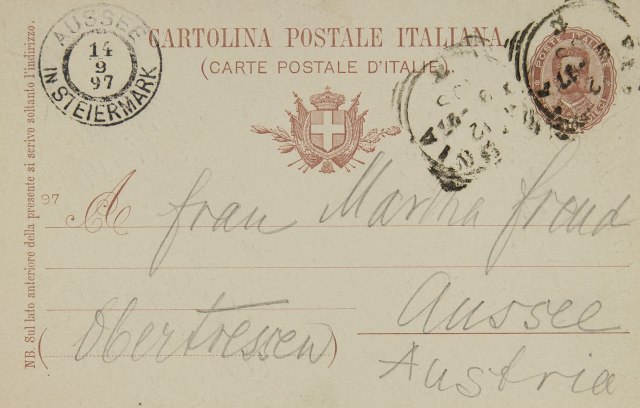 AUSSEE
14
9
97
IN STEIERMARK
CARTOLINA POSTALE ITALIANA
(CARTE POSTALE D'ITALIE)
POSTE ITALIANE
NB. Sul lato anteriore della presente si scrive soltanto l'indirizzo.
97
A frau Martha Freud
(Obertressen)
Aussee
Austria